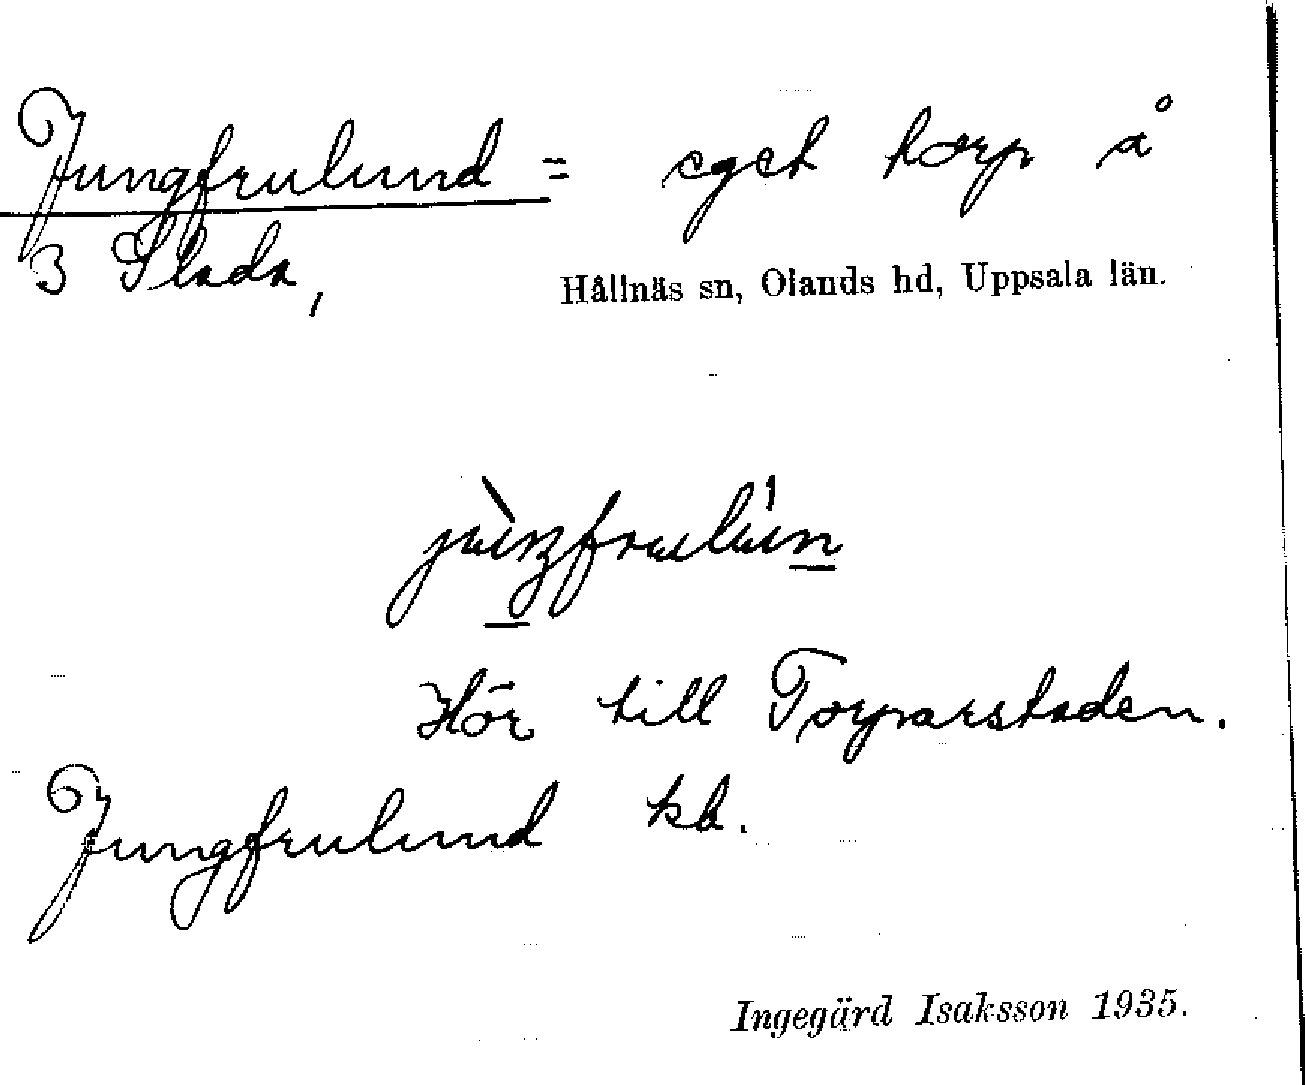 Jungfrulund = eget torp å
3 Slada,
Hållnäs sn, Olands hd, Uppsala län.
jùŋfrulún
Hör till Torparstaden.
Jungfrulund kb.
Ingegärd Isaksson 1935.